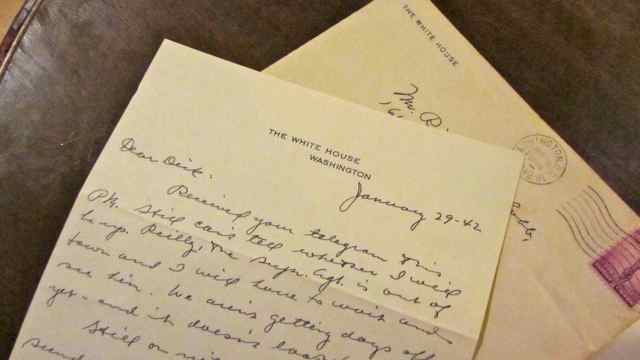 THE WHITE HOUSE
WASHINGTON
January 29-42
Dear Dick:
Received your telegram this
P.M. Still can't tell whether I will
be up. Reilly, the Supv. Agt. is out of
town and I will have to wait and
see him. We aren't getting days off
yet - and it doesn't look
Still on
THE WHITE HOUSE
Mr. D.